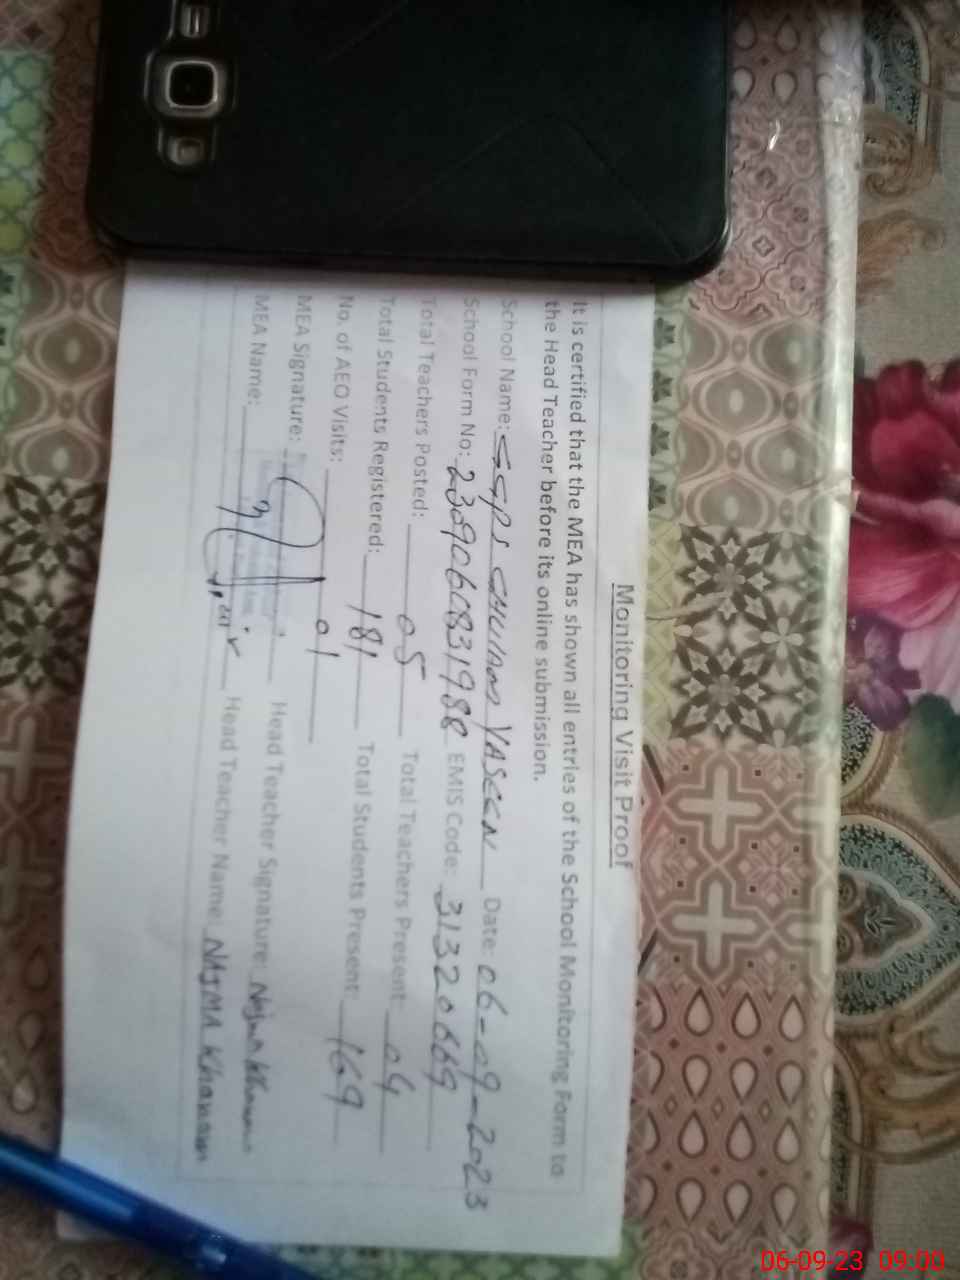 Monitoring Visit Proof
It is certified that the MEA has shown all entries of the School Monitoring Form to
the Head Teacher before its online submission.
School Name: GGPS YASEEN Date: 06-09-2023
School Form No: 2309060831988 EMIS Code: 31320669
Total Teachers Posted: 05 Total Teachers Present: 04
Total Students Registered: 181 Total Students Present: 169
No. of AEO Visits: 01
MEA Signature: Head Teacher Signature: Najma Khanam
MEA Name: Head Teacher Name NAJMA Khanam
06-09-23 09:00